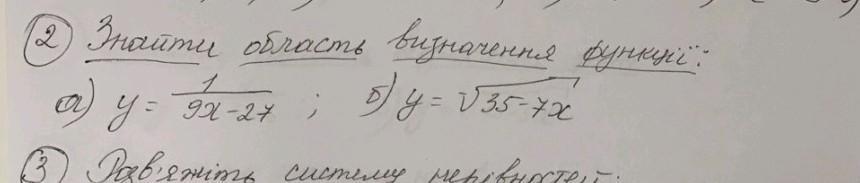 ② Знайти область визначення функції:
а) y = 1/(9x-27) ; б) y = √(35-7x)
③ Розв'яжіть систему нерівностей: